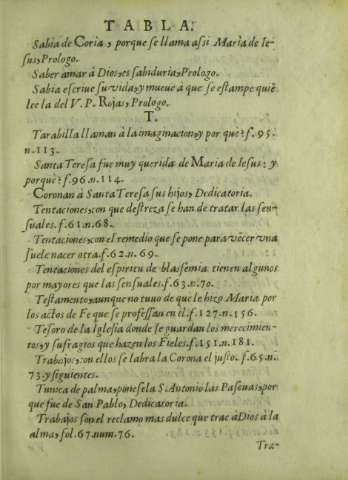 TABLA.
Sabia de Coria, porque se llama assi Maria de Ie-
sus, Prologo.
Saber amar à Dios, es sabiduria, Prologo.
Sabia escriue su vida, y mueue à que se estampe quiē
lee la del V. P. Rojas, Prologo.
T.
Tarabilla llaman à la imaginacion, y por què? f. 95.
n. 113.
Santa Teresa fue muy querida de Maria de Iesus: y
porquè? f. 96. n. 114.
Coronan à Santa Teresa sus hijos, Dedicatoria.
Tentaciones, con que destreza se han de tratar las sen-
suales. f. 61. n. 68.
Tentaciones, con el remedio que se pone para vēcer vna
suele nacer otra. f. 62. n. 69.
Tentaciones del espiritu de blasfemia tienen algunos
por mayores que las sensuales. f. 63. n. 70.
Testamento, aunque no tuuo de que le hizo Maria por
los actos de Fe que se professan en el. f. 127. n. 156.
Tesoro de la Iglesia donde se guardan los merecimien-
tos, y sufragios que hazen los Fieles. f. 151. n. 181.
Trabajos, con ellos se labra la Corona el justo. f. 65. n.
73. y siguientes.
Tunica de palma, poniesela S. Antonio las Pascuas, por
que fue de San Pablo, Dedicatoria.
Trabajos son el reclamo mas dulce que trae à Dios à la
alma, fol. 67. num. 76.
Tra-